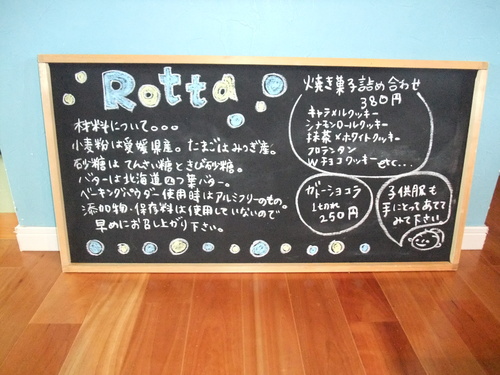 Rotta
材料について。。。
小麦粉は愛媛県産。たまごはみつぎ産。
砂糖はてんさい糖ときび砂糖。
バターは北海道四つ葉バター。
ベーキングパウダー使用時はアルミフリーのもの。
添加物・保存料は使用していないので
早めにお召し上がり下さい。
焼き菓子詰め合わせ
380円
キャラメルクッキー
シナモンロールクッキー
抹茶×ホワイトクッキー
フロランタン
Wチョコクッキー etc...
ガトーショコラ
1切れ
250円
子供服も
手にとってあてて
みて下さい